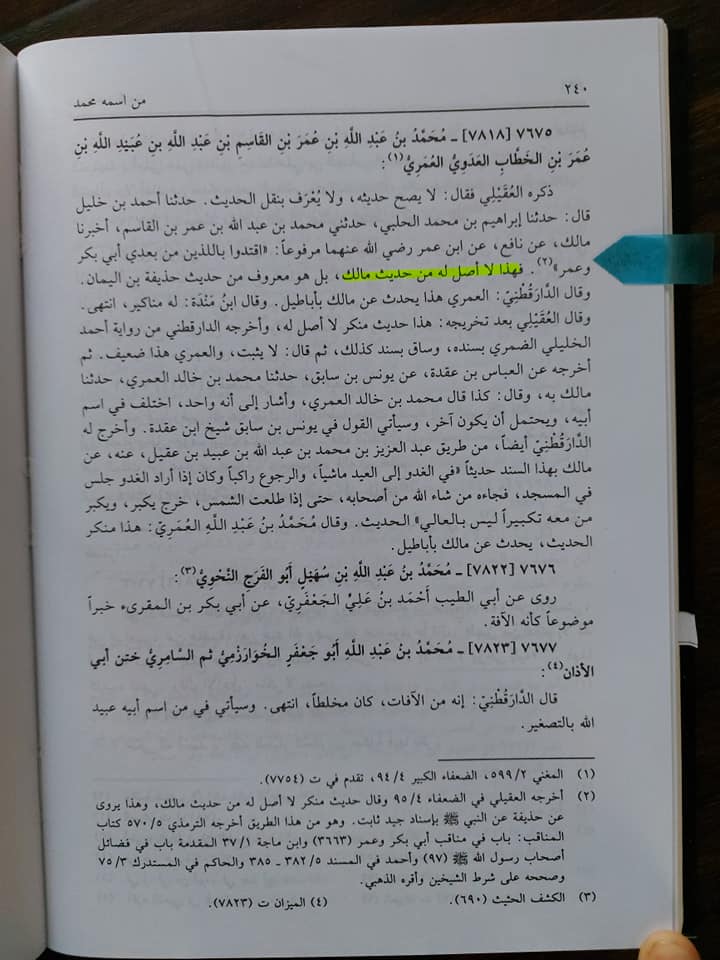 ٢٤٠
من اسمه محمد
٧٦٧٥ [٧٨١٨] ـ مُحَمَّدُ بنُ عَبْدِ اللَّهِ بْنِ عُمَرَ بْنِ القَاسِمِ بْنِ عَبْدِ اللَّهِ بنِ عُبَيْدِ اللَّهِ بْنِ
عُمَرَ بْنِ الخَطَّابِ العَدَوِيُّ العُمَرِيُّ(١):
ذكره العُقَيْلِي فقال: لا يصح حديثه، ولا يُعْرَف بنقل الحديث. حدثنا أحمد بن خليل
قال: حدثنا إبراهيم بن محمد الحلبي، حدثني محمد بن عبد الله بن عمر بن القاسم، أخبرنا
مالك، عن نافع، عن ابن عمر رضي الله عنهما مرفوعاً: «اقتدوا باللذين من بعدي أبي بكر
وعمر»(٢). فهذا لا أصل له من حديث مالك، بل هو معروف من حديث حذيفة بن اليمان.
وقال الدَّارَقُطْنِيّ: العمري هذا يحدث عن مالك بأباطيل. وقال ابنُ مَنْدَة: له مناكير، انتهى.
وقال العُقَيْلي بعد تخريجه: هذا حديث منكر لا أصل له، وأخرجه الدارقطني من رواية أحمد
الخليلي الضمري بسنده، وساق بسند كذلك، ثم قال: لا يثبت، والعمري هذا ضعيف. ثم
أخرجه عن العباس بن عقدة، عن يونس بن سابق، حدثنا محمد بن خالد العمري، حدثنا
مالك به، وقال: كذا قال محمد بن خالد العمري، وأشار إلى أنه واحد، اختلف في اسم
أبيه، ويحتمل أن يكون آخر، وسيأتي القول في يونس بن سابق شيخ ابن عقدة. وأخرج له
الدَّارَقُطْنِيّ أيضاً، من طريق عبد العزيز بن محمد بن عبد الله بن عبيد بن عقيل، عنه، عن
مالك بهذا السند حديثاً «في الغدو إلى العيد ماشياً، والرجوع راكباً وكان إذا أراد الغدو جلس
في المسجد، فجاءه من شاء الله من أصحابه، حتى إذا طلعت الشمس، خرج يكبر، ويكبر
من معه تكبيراً ليس بالعالي» الحديث. وقال مُحَمَّدُ بنُ عَبْدِ اللَّهِ العُمَرِيّ: هذا منكر
الحديث، يحدث عن مالك بأباطيل.
٧٦٧٦ [٧٨٢٢] ـ مُحَمَّدُ بنُ عَبْدِ اللَّهِ بْنِ سُهَيْلٍ أَبُو الفَرَجِ النَّحْوِيُّ(٣):
روى عن أبي الطيب أَحْمَدَ بنُ عَلِيٍّ الجَعْفَرِيّ، عن أبي بكر بن المقرىء خبراً
موضوعاً كأنه الآفة.
٧٦٧٧ [٧٨٢٣] ـ مُحَمَّدُ بنُ عَبْدِ اللَّهِ أَبُو جَعْفَرٍ الخُوَارَزْمِيُّ ثم السَّامِرِيُّ ختن أبي
الأذان(٤):
قال الدَّارَقُطْنِيّ: إنه من الآفات، كان مخلطاً، انتهى. وسيأتي في من اسم أبيه عبيد
الله بالتصغير.
(١) المغني ٥٩٩/٢، الضعفاء الكبير ٩٤/٤، تقدم في ت (٧٧٥٤).
(٢) أخرجه العقيلي في الضعفاء ٩٥/٤ وقال حديث منكر لا أصل له من حديث مالك، وهذا يروى
عن حذيفة عن النبي ﷺ بإسناد جيد ثابت. وهو من هذا الطريق أخرجه الترمذي ٥٧٠/٥ كتاب
المناقب: باب في مناقب أبي بكر وعمر (٣٦٦٣) وابن ماجة ٣٧/١ المقدمة باب في فضائل
أصحاب رسول الله ﷺ (٩٧) وأحمد في المسند ٣٨٢/٥ ـ ٣٨٥ والحاكم في المستدرك ٧٥/٣
وصححه على شرط الشيخين وأقره الذهبي.
(٣) الكشف الحثيث (٦٩٠). (٤) الميزان ت (٧٨٢٣).